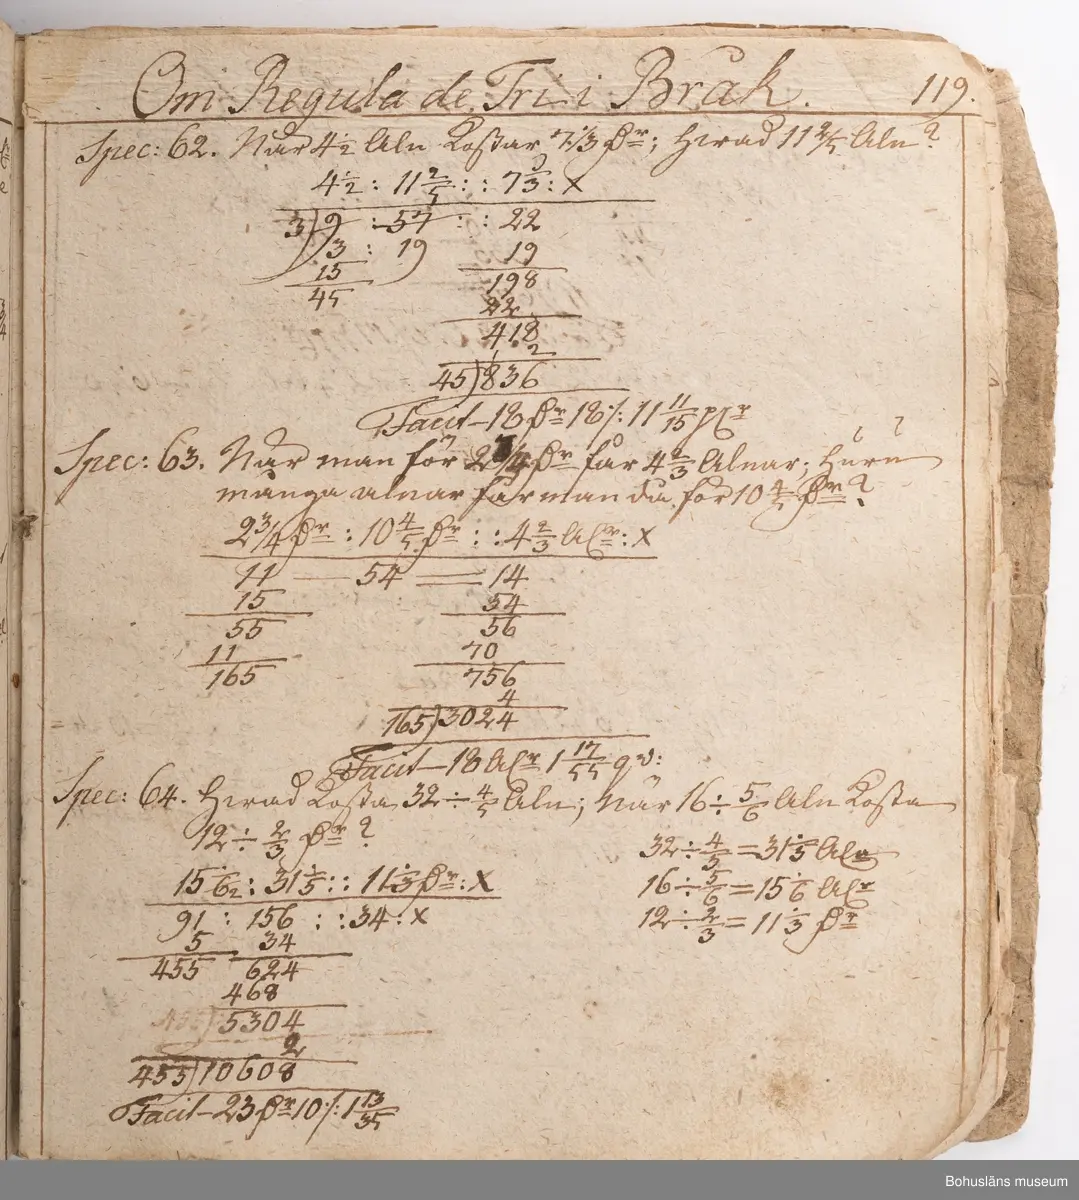 Om Regula de Tri i Bråk. 119.
Spec: 62. När 4 1/2 Aln Kostar 7 1/3 Dr; Hwad 11 2/5 Aln?
4 1/2 : 11 2/5 : : 7 1/3 : X
3) 9 : 57 : : 22
3 : 19 19
15 198
45 22
418
2
45) 836
Facit – 18 Dr 18 /: 11 11/15 pgr
Spec: 63. När man för 2 3/4 Dr får 4 2/3 Alnar; Huru
många alnar får man då för 10 4/5 Dr?
2 3/4 Dr : 10 4/5 Dr : : 4 2/3 Alr : X
11 — 54 — 14
15 54
55 56
11 70
165 756
4
165) 3024
Facit – 18 Alr 1 17/55 qv:
Spec: 64. Hwad Kosta 32 ÷ 4/5 Aln; När 16 ÷ 5/6 Aln Kosta
12 ÷ 2/3 Dr?
32 ÷ 4/5 = 31 1/5 Alr
15 1/6 : 31 1/5 : : 11 1/3 Dr : X
16 ÷ 5/6 = 15 1/6 Alr
91 : 156 : : 34 : X
12 ÷ 2/3 = 11 1/3 Dr
5 34
455 624
468
455) 5304
2
455) 10608
Facit – 23 Dr 10 /: 1 13/35
Bohusläns museum